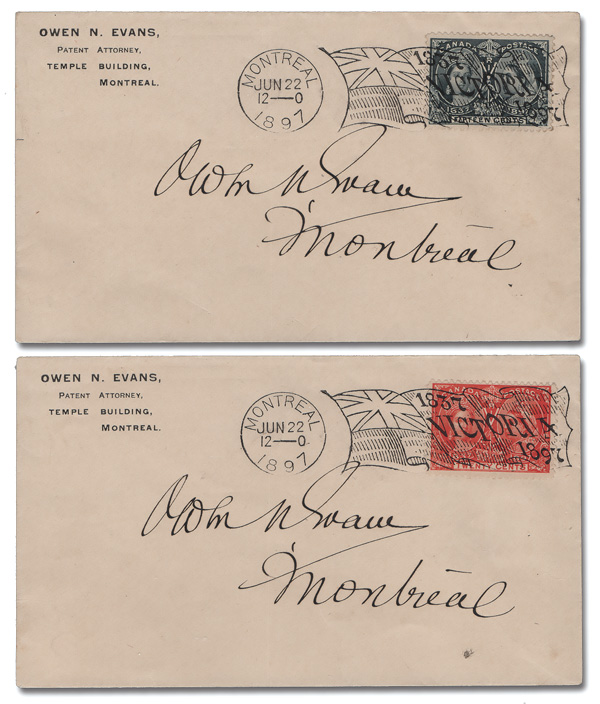 OWEN N. EVANS,
PATENT ATTORNEY,
TEMPLE BUILDING,
MONTREAL.
MONTREAL
JUN 22
12—0
1897
1837
VICTORIA
1897
CANADA POSTAGE
1837 1897
FIFTEEN CENTS
Owen N Evans
Montreal
OWEN N. EVANS,
PATENT ATTORNEY,
TEMPLE BUILDING,
MONTREAL.
MONTREAL
JUN 22
12—0
1897
1837
VICTORIA
1897
CANADA POSTAGE
TWENTY CENTS
Owen N Evans
Montreal